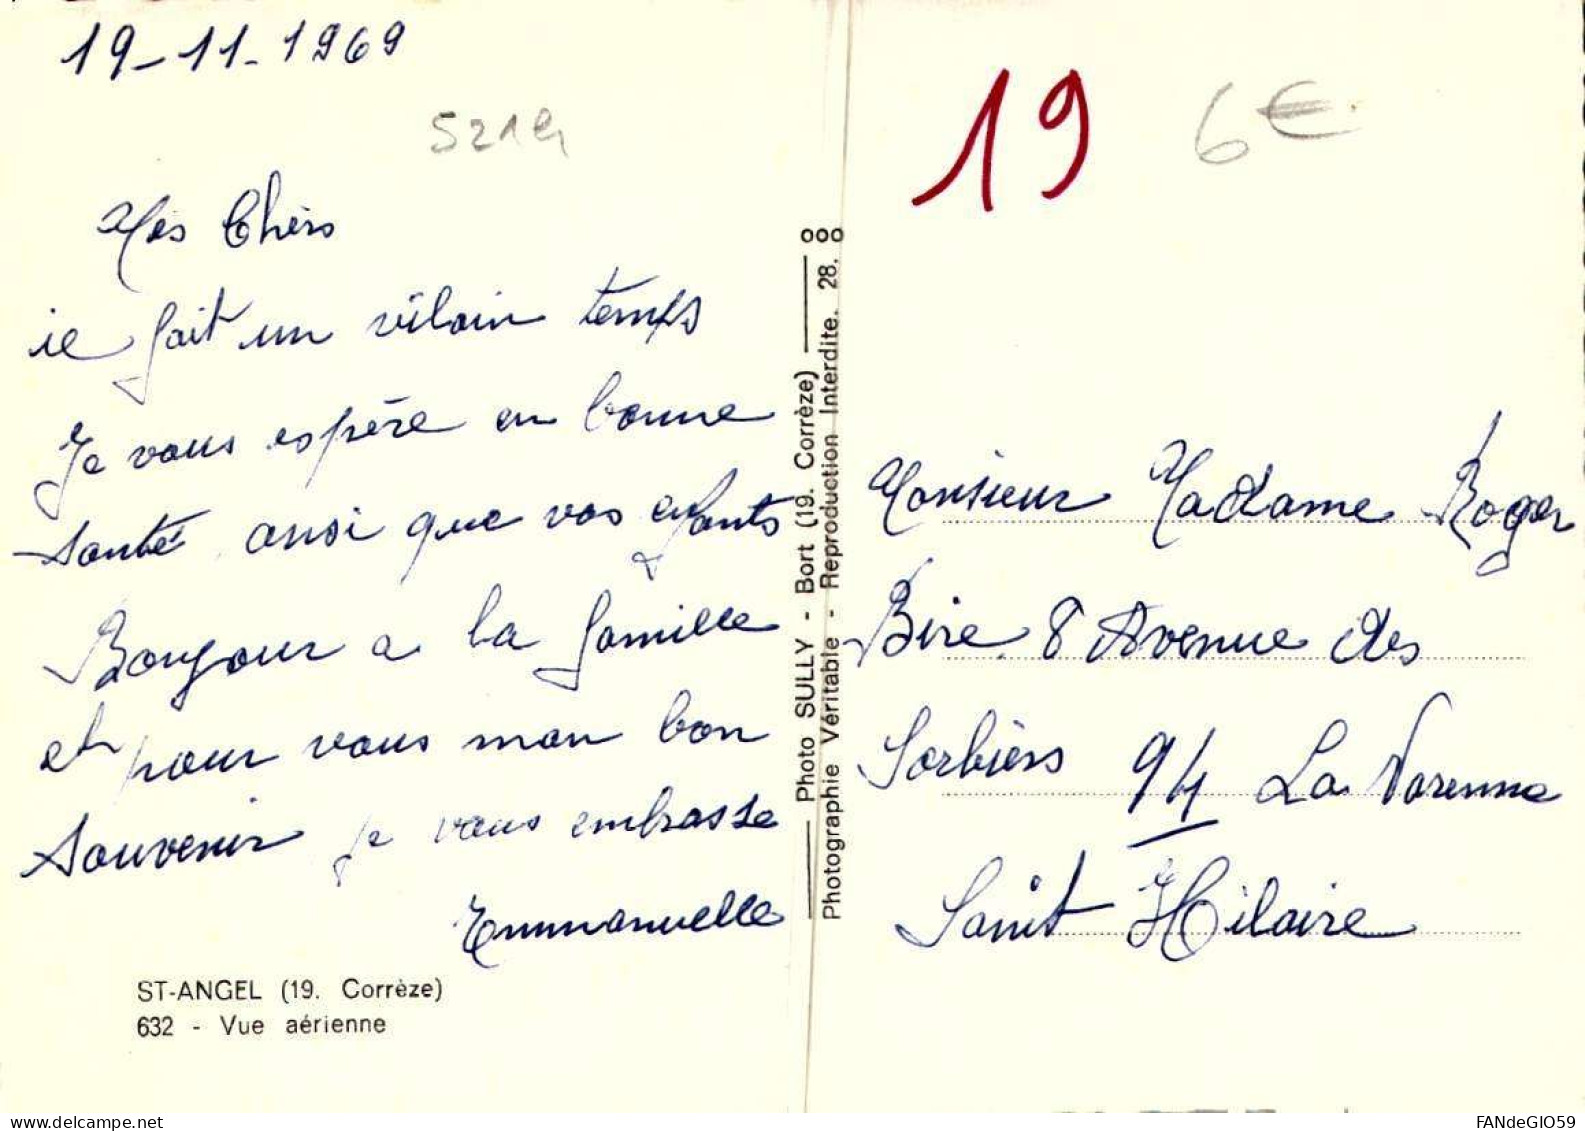 19-11-1969
Mes Chers
il fait un vilain temps
Je vous espère en bonne
santé ainsi que vos enfants
Bonjour a la famille
et pour vous mon bon
souvenir je vous embrasse
Emmanuelle
ST-ANGEL (19. Corrèze)
632 - Vue aérienne
Photo SULLY - Bort (19. Corrèze)
Photographie Véritable - Reproduction Interdite. 28.
19
6€
Monsieur Madame Roger
Bire 8 Avenue des
Sorbiers 94 La Varenne
Sanit Hilaire
FANdeGIO59